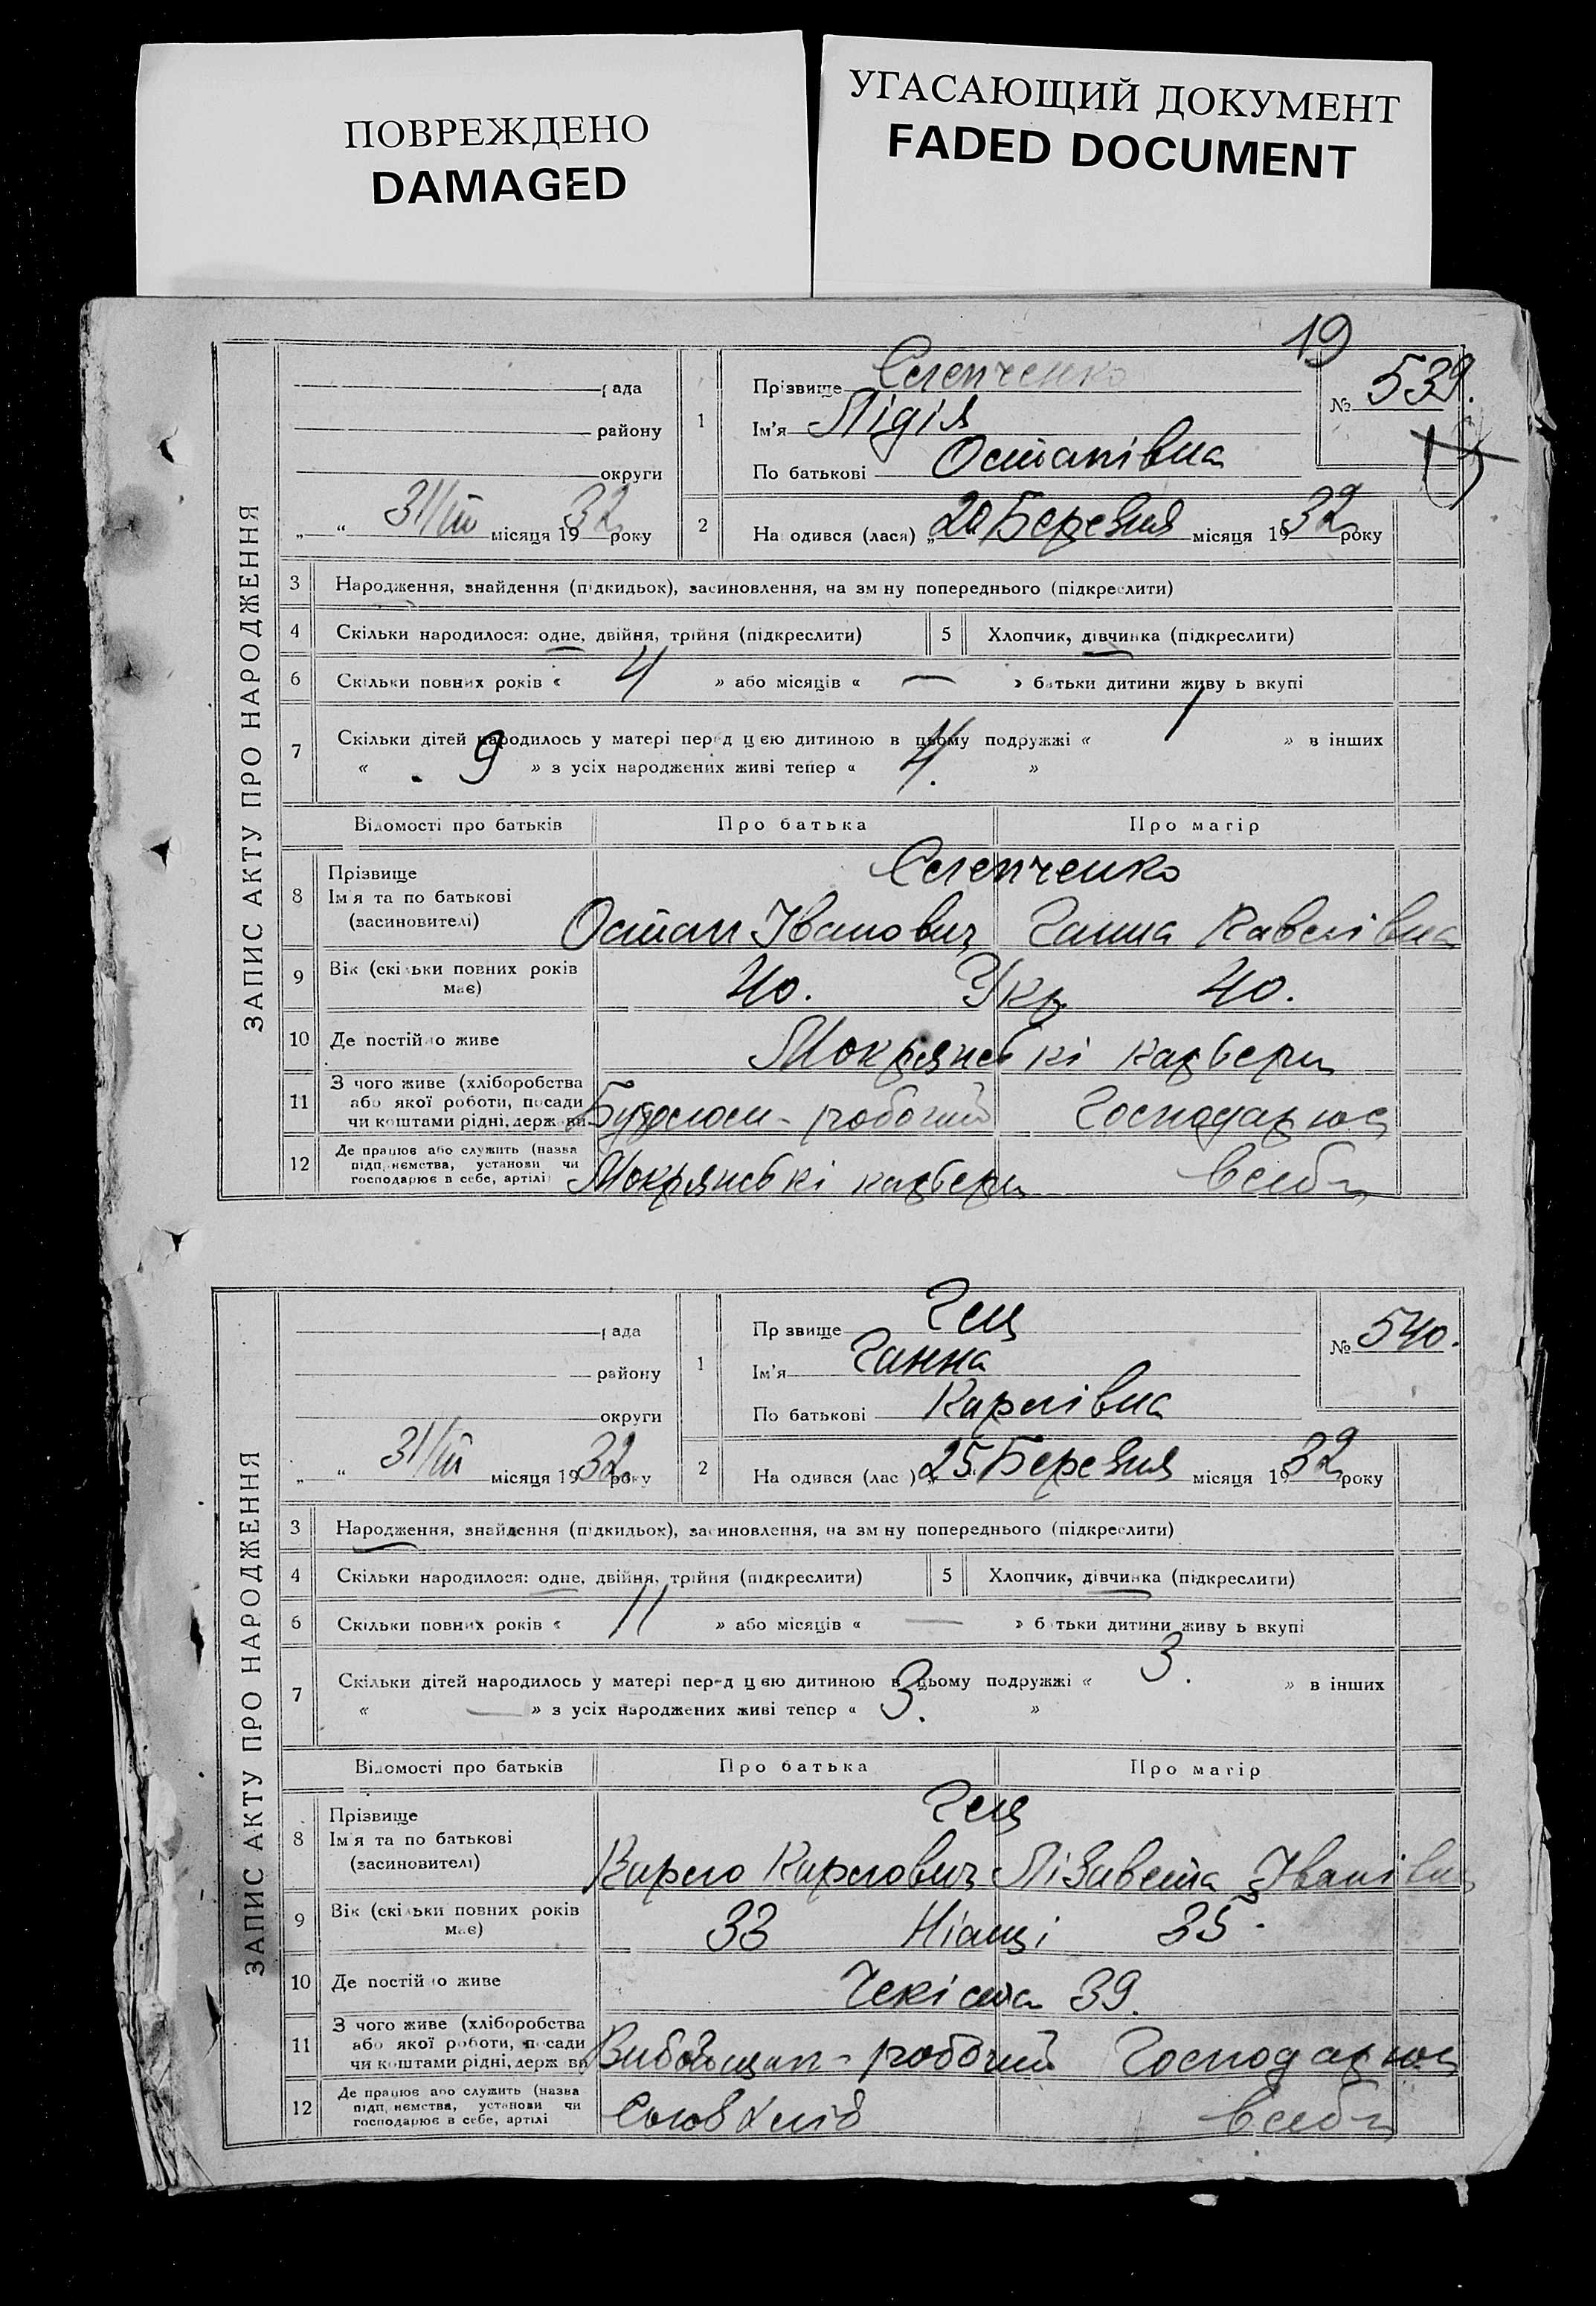 ПОВРЕЖДЕНО
DAMAGED
УГАСАЮЩИЙ ДОКУМЕНТ
FADED DOCUMENT
19
ЗАПИС АКТУ ПРО НАРОДЖЕННЯ
рада
району
округи
„ “ 31/III місяця 1932 року
1
Прізвище Селепченко
Ім'я Лідія
По батькові Остапівна
№ 539.
2 На одився (лася) „20 Березня місяця 1932 року
3 Народження, знайдення (підкидьок), засиновлення, на зм ну попереднього (підкреслити)
4 Скільки народилося: одне, двійня, трійня (підкреслити)
5 Хлопчик, дівчинка (підкреслити)
6 Скільки повних років « 4 » або місяців « — » батьки дитини живу ь вкупі
7 Скільки дітей народилось у матері перед цією дитиною в цьому подружжі « 1 » в інших
« 9 » з усіх народжених живі тепер « 4. »
Відомості про батьків Про батька Про матір
8 Прізвище Селепченко
Ім'я та по батькові
(засиновителі) Остап Іванович Ганна Павлівна
9 Вік (скільки повних років
має) 40. Укр 40.
10 Де постійно живе Мокрянські карьери
11 З чого живе (хліборобства
або якої роботи, посади
чи коштами рідні, держави робочий Господарює
12 Де працює або служить (назва
підприємства, установи чи
господарює в себе, артілі) Мокрянські карьери в себе
ЗАПИС АКТУ ПРО НАРОДЖЕННЯ
рада
району
округи
„ “ 31/III місяця 1932 року
1
Пр звище Гец
Ім'я Ганна
По батькові Карлівна
№ 540.
2 На одився (лас ) „25 Березня місяця 1932 року
3 Народження, знайдення (підкидьок), засиновлення, на зм ну попереднього (підкреслити)
4 Скільки народилося: одне, двійня, трійня (підкреслити)
5 Хлопчик, дівчинка (підкреслити)
6 Скільки повних років « 11 » або місяців « — » батьки дитини живу ь вкупі
7 Скільки дітей народилось у матері перед цією дитиною в цьому подружжі « 3. » в інших
« — » з усіх народжених живі тепер « 3. »
Відомості про батьків Про батька Про матір
8 Прізвище Гец
Ім'я та по батькові
(засиновителі) Карло Карлович Лізавета Іванівна
9 Вік (скільки повних років
має) 33 Німці 35.
10 Де постійно живе Чекіста 39.
11 З чого живе (хліборобства
або якої роботи, посади
чи коштами рідні, держ вр Вибойщик - робочий Господарює
12 Де працює або служить (назва
підприємства, установи чи
господарює в себе, артілі в себе